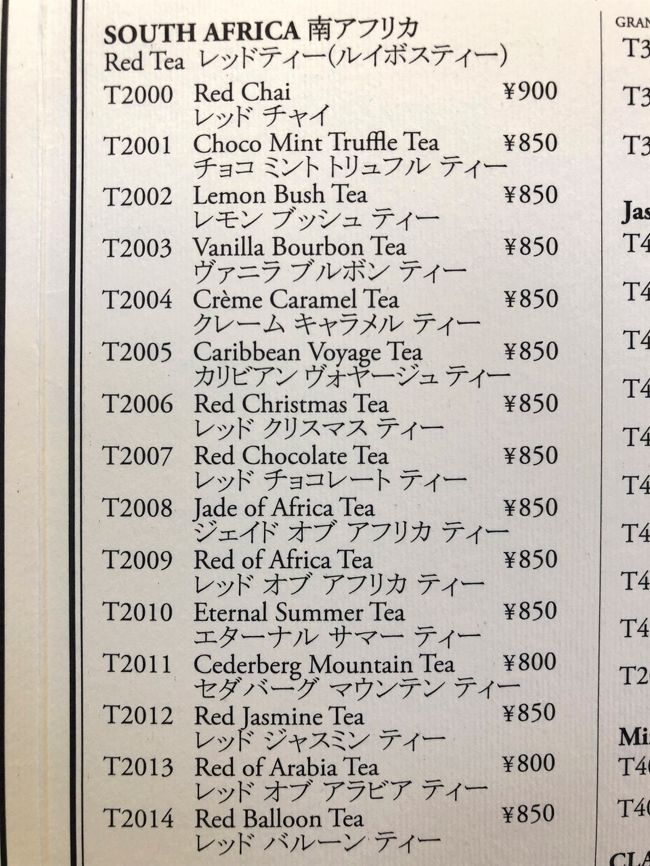 SOUTH AFRICA 南アフリカ
Red Tea レッドティー(ルイボスティー)
T2000 Red Chai ¥900
レッド チャイ
T2001 Choco Mint Truffle Tea ¥850
チョコ ミント トリュフル ティー
T2002 Lemon Bush Tea ¥850
レモン ブッシュ ティー
T2003 Vanilla Bourbon Tea ¥850
ヴァニラ ブルボン ティー
T2004 Crème Caramel Tea ¥850
クレーム キャラメル ティー
T2005 Caribbean Voyage Tea ¥850
カリビアン ヴォヤージュ ティー
T2006 Red Christmas Tea ¥850
レッド クリスマス ティー
T2007 Red Chocolate Tea ¥850
レッド チョコレート ティー
T2008 Jade of Africa Tea ¥850
ジェイド オブ アフリカ ティー
T2009 Red of Africa Tea ¥850
レッド オブ アフリカ ティー
T2010 Eternal Summer Tea ¥850
エターナル サマー ティー
T2011 Cederberg Mountain Tea ¥800
セダバーグ マウンテン ティー
T2012 Red Jasmine Tea ¥850
レッド ジャスミン ティー
T2013 Red of Arabia Tea ¥800
レッド オブ アラビア ティー
T2014 Red Balloon Tea ¥850
レッド バルーン ティー